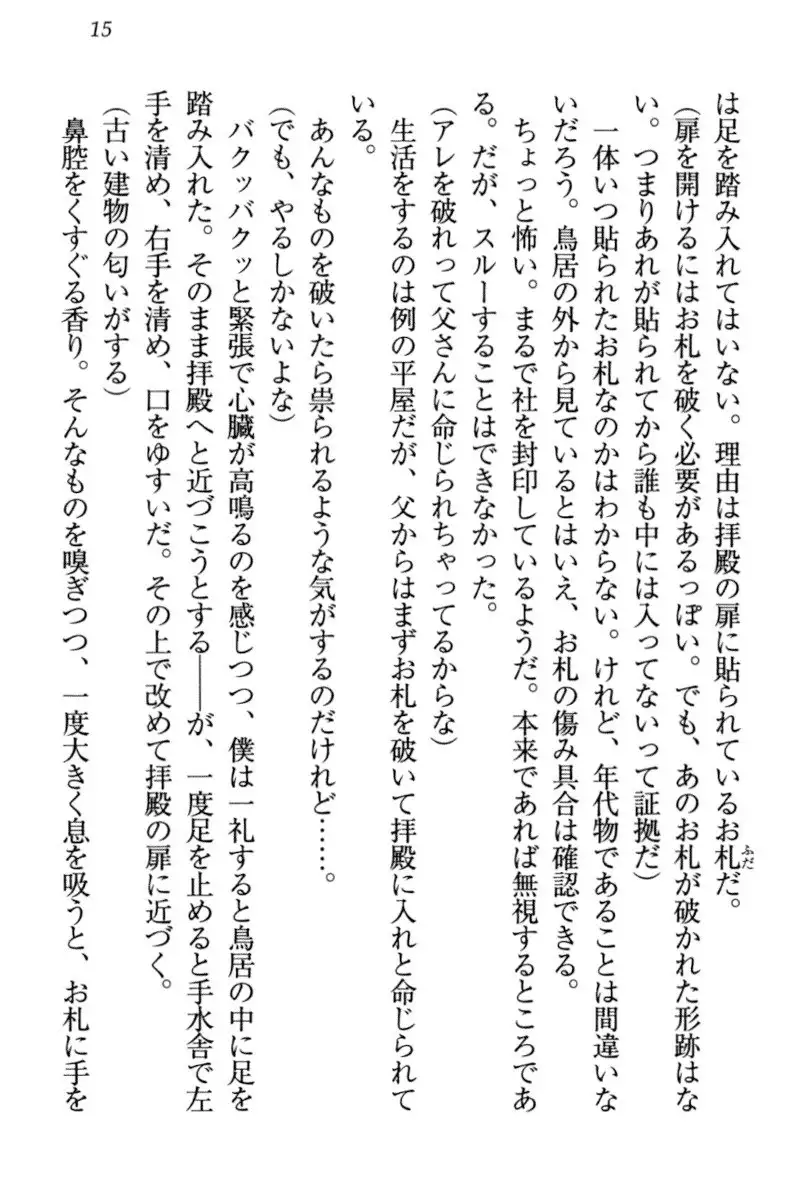 15
は足を踏み入れてはいない。理由は拝殿の扉に貼られているお札だ。
ふだ
（扉を開けるにはお札を破く必要があるっぽい。でも、あのお札が破かれた形跡はな
い。つまりあれが貼られてから誰も中には入ってないって証拠だ）
一体いつ貼られたお札なのかはわからない。けれど、年代物であることは間違いな
いだろう。鳥居の外から見ているとはいえ、お札の傷み具合は確認できる。
ちょっと怖い。まるで社を封印しているようだ。本来であれば無視するところであ
る。だが、スルーすることはできなかった。
（アレを破れって父さんに命じられちゃってるからな）
生活をするのは例の平屋だが、父からはまずお札を破いて拝殿に入れと命じられて
いる。
あんなものを破いたら祟られるような気がするのだけれど……。
（でも、やるしかないよな）
バクッバクッと緊張で心臓が高鳴るのを感じつつ、僕は一礼すると鳥居の中に足を
踏み入れた。そのまま拝殿へと近づこうとする――が、一度足を止めると手水舎で左
手を清め、右手を清め、口をゆすいだ。その上で改めて拝殿の扉に近づく。
（古い建物の匂いがする）
鼻腔をくすぐる香り。そんなものを嗅ぎつつ、一度大きく息を吸うと、お札に手を